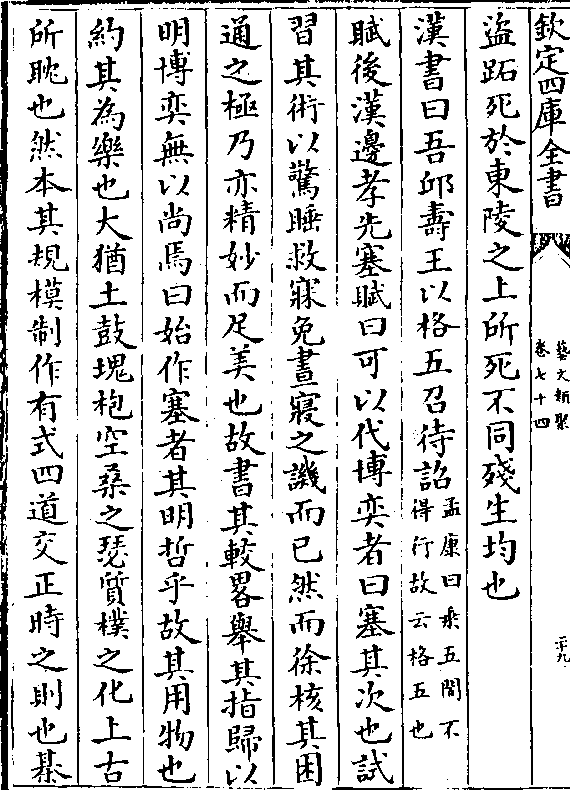 欽定四庫全書
藝文類聚
卷七十四
二十九
盜跖死於東陵之上所死不同殘生均也
漢書曰吾邱壽王以格五召待詔孟康曰乘五閣不
得行故云格五也
賦後漢邊孝先塞賦曰可以代博奕者曰塞其次也試
習其術以驚睡救寐免晝寢之譏而已然而徐核其困
通之極乃亦精妙而足美也故書其較畧舉其指歸以
明博奕無以尚焉曰始作塞者其明哲乎故其用物也
約其為樂也大猶土鼓塊枹空桑之瑟質樸之化上古
所耽也然本其規模制作有式四道交正時之則也棊